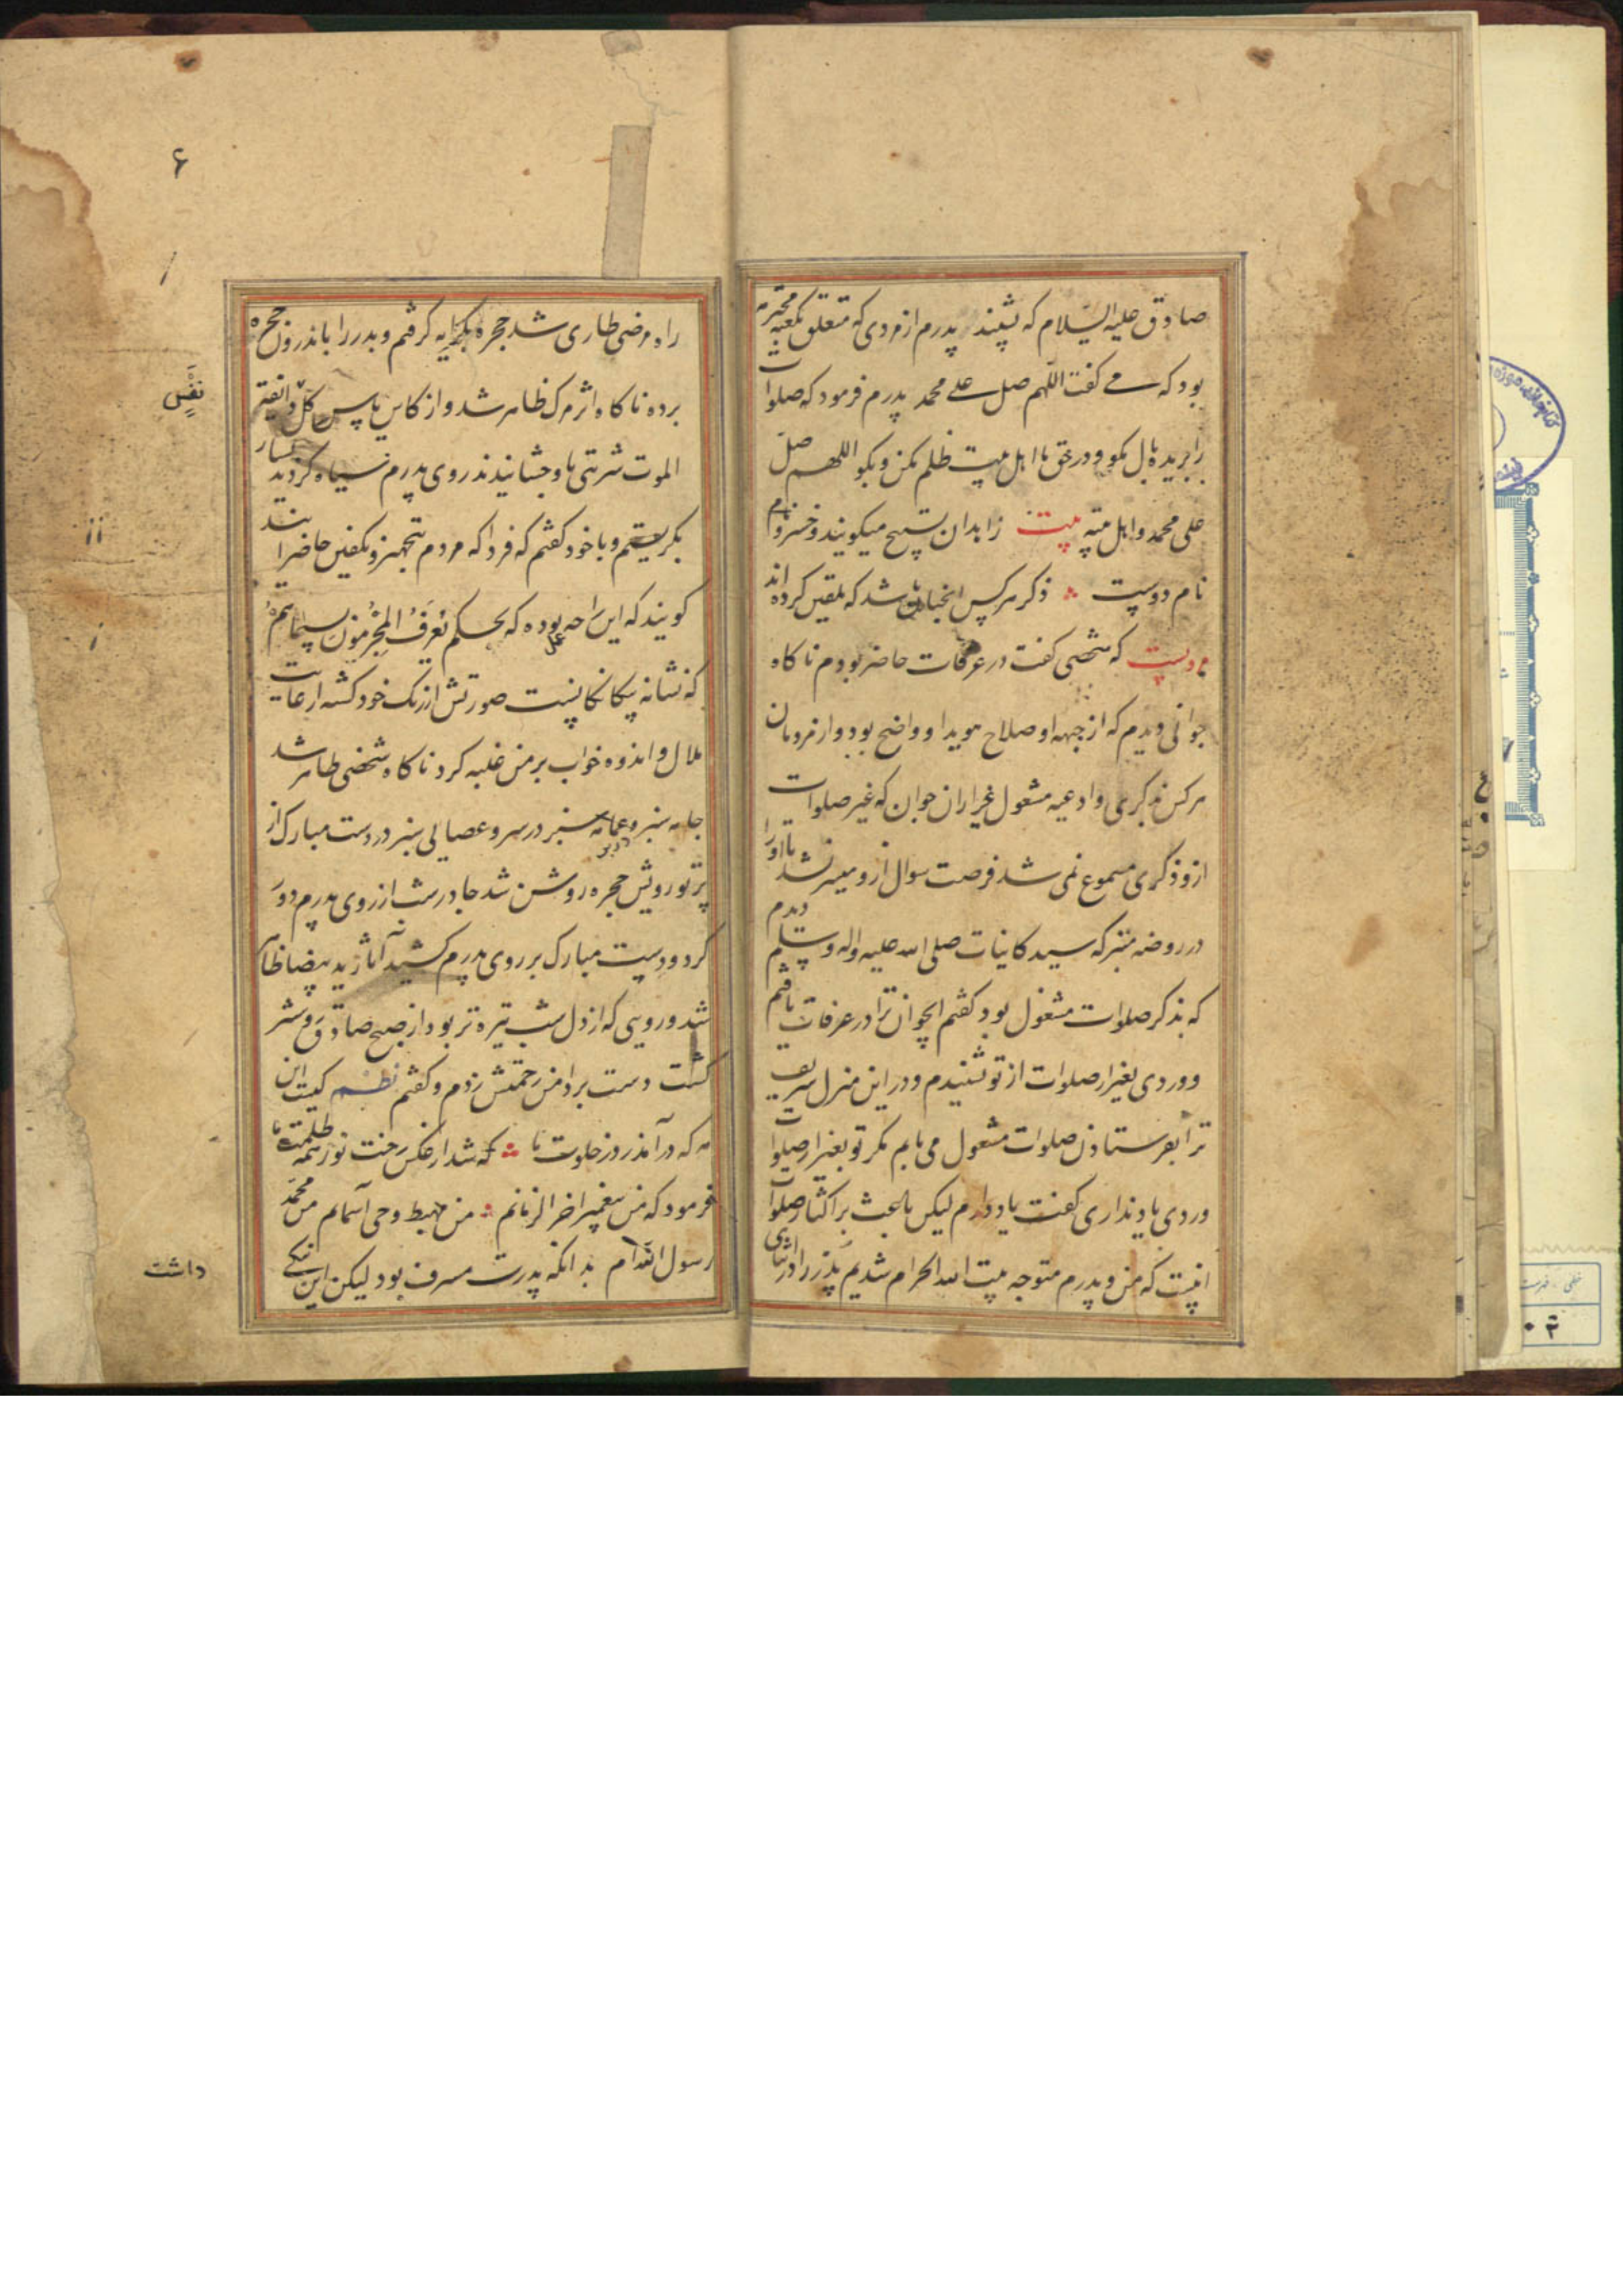 صادق علیه السلام که بشنید پدرم از مردی که متعلق بکعبه محترمه
بود که می گفت اللهم صل علی محمد پدرم فرمود که صلوات
را بریده بال مگو و در حق ما اهل بیت ظلم مکن و بگو اللهم صل
علی محمد و اهل بیته بیت زاهدان تسبیح میگویند و خسرو نام
نام دوست ذکر هرکس آنچنان باشد که تلقین کرده اند
که شخصی گفت در عرفات حاضر بودم ناگاه
جوانی دیدم که از جبهه او صلاح هویدا و واضح بود و از مردمان
هرکس بذکری و ادعیه مشغول غیر از آن جوان که غیر صلوات
ازو ذکری مسموع نمی شد فرصت سوال ازو میسر نشد تا او را
در روضه متبرکه سید کاینات صلی الله علیه و اله و سلم دیدم
که بذکر صلوات مشغول بود گفتم ایجوان ترا در عرفات یافتم
و وردی بغیر از صلوات از تو نشنیدم و در این منزل شریف
ترا بفرستادن صلوات مشغول می یابم مگر تو بغیر از صلوات
وردی یاد نداری گفت یاد دارم لیکن باعث بر اکثار صلوات
اینست که من و پدرم متوجه بیت الله الحرام شدیم پدر را در اثنای
۶
راه مرضی طاری شد حجره بکرایه گرفتم و پدر را باندرون حجره
برده ناگاه اثر مرگ ظاهر شد و از کاس یاس کل نفس ذائقة
الموت شربتی باو چشانیدند روی پدرم سیاه گردید بسیار
بگریستم و با خود گفتم که فردا که مردم بتجهیز و تکفین حاضر آیند
گویند که این را چه عمل بوده که بحکم یُعرَفُ المُجرِمونَ بِسیماهُم
که نشانه بیگانگانست صورتش از رنگ خود گشته از غایت
ملال و اندوه خواب بر من غلبه کرد ناگاه شخصی ظاهر شد
جامه سبز در بر و عمامه سبز در سر و عصایی سبز در دست مبارک از
پرتو رویش حجره روشن شد چادر شب از روی پدرم دور
کرد و دست مبارک بر روی پدرم کشید آثار ید بیضا ظاهر
شد و رویی که از دل شب تیره تر بود از صبح صادق روشنتر
گشت دست بر دامن رحمتش زدم و گفتم نظم کیست این
مه که درآمد ز در خلوت ما که شد از عکس رخت نور همه ظلمت ما
فرمود که من پیغمبر اخر الزمانم من مهبط وحی آسمانم من محمد
رسول الله ام بدانکه پدرت مسرف بود لیکن این نیکی
نَفْسٍ
داشت